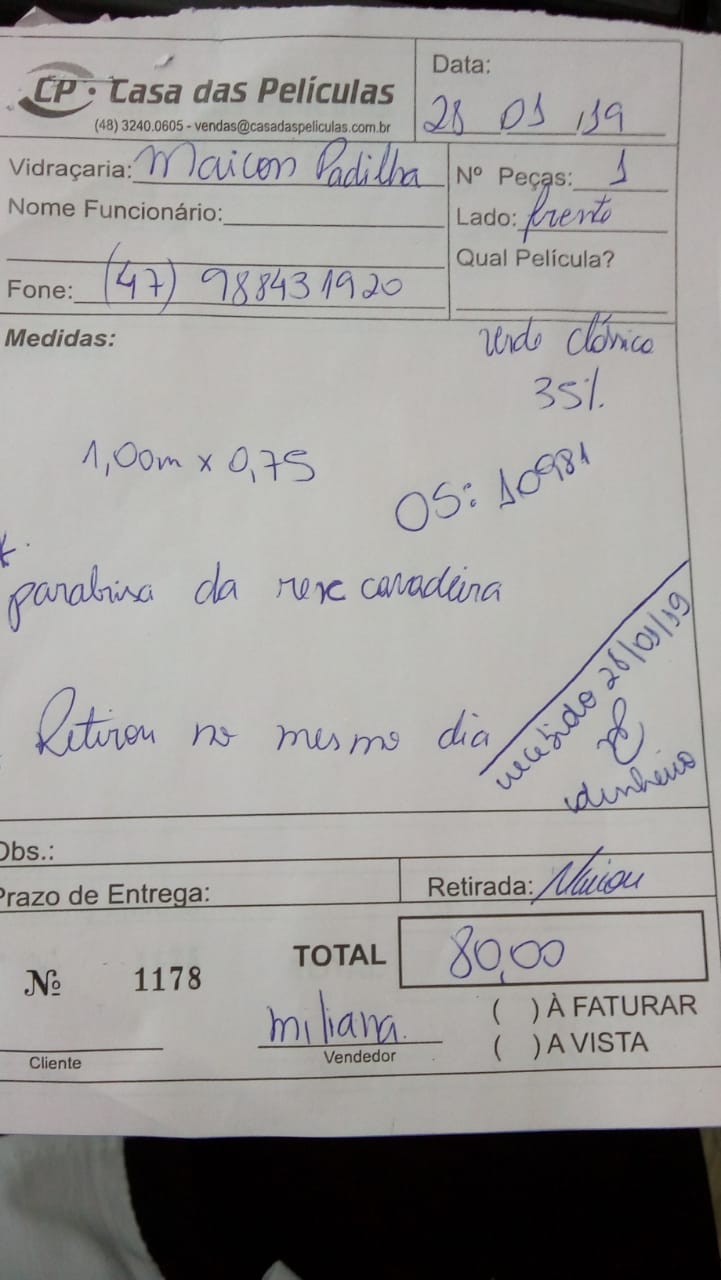 CP · Casa das Películas
(48) 3240.0605 - vendas@casadaspeliculas.com.br
Data:
28 01 19
Vidraçaria: Maicon Padilha
Nº Peças: 1
Nome Funcionário:
Lado: frente
Qual Película?
Fone: (47) 988431920
Medidas:
verde clássico
35%
1,00m x 0,75
OS: 10981
parabrisa da rexe cavadeira
Retirou no mesmo dia
recebido 28/01/19
dinheiro
Obs.:
Prazo de Entrega:
Retirada: Maicon
TOTAL 80,00
Nº 1178
miliana
( ) À FATURAR
( ) A VISTA
Cliente
Vendedor